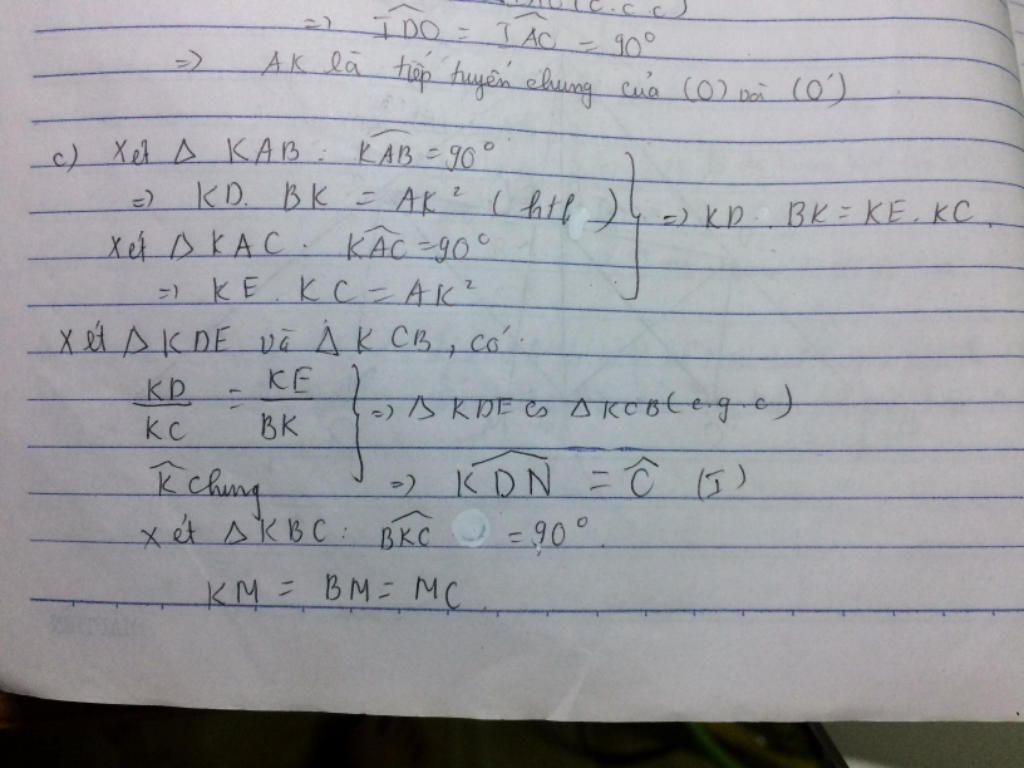 (c.c.c)
=> IDO = IAC = 90°
=> AK là tiếp tuyến chung của (O) với (O')
c) Xét Δ KAB : KAB = 90°
=> KD. BK = AK² (htl) => KD . BK = KE. KC
Xét Δ KAC . KAC = 90°
=> KE . KC = AK²
Xét Δ KDE và Δ KCB, có:
KD/KC = KE/BK => Δ KDE ∽ Δ KCB (c.g.c)
K chung => KDN = C (I)
Xét Δ KBC: BKC = 90°.
KM = BM = MC